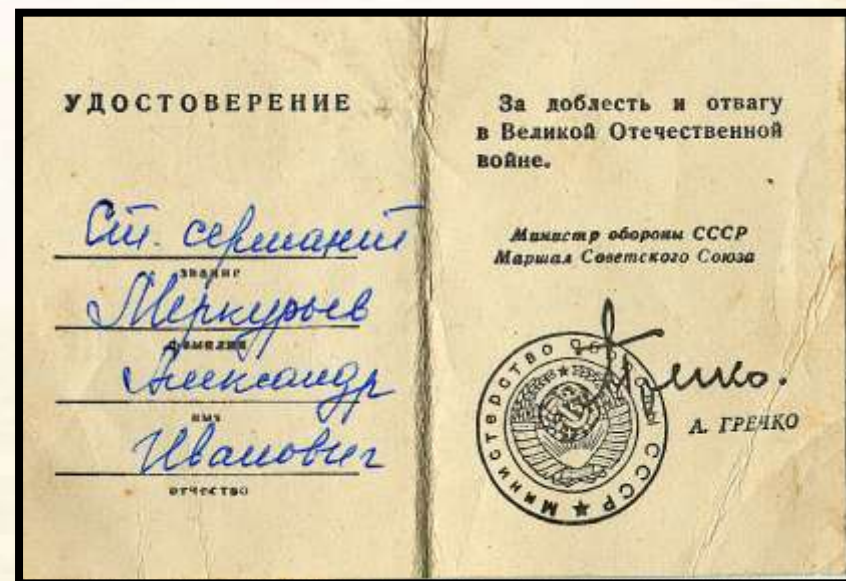 УДОСТОВЕРЕНИЕ
Ст. сержант
звание
Меркурьев
фамилия
Александр
имя
Иванович
отчество
За доблесть и отвагу
в Великой Отечественной
войне.
Министр обороны СССР
Маршал Советского Союза
Министерство обороны СССР
А. ГРЕЧКО